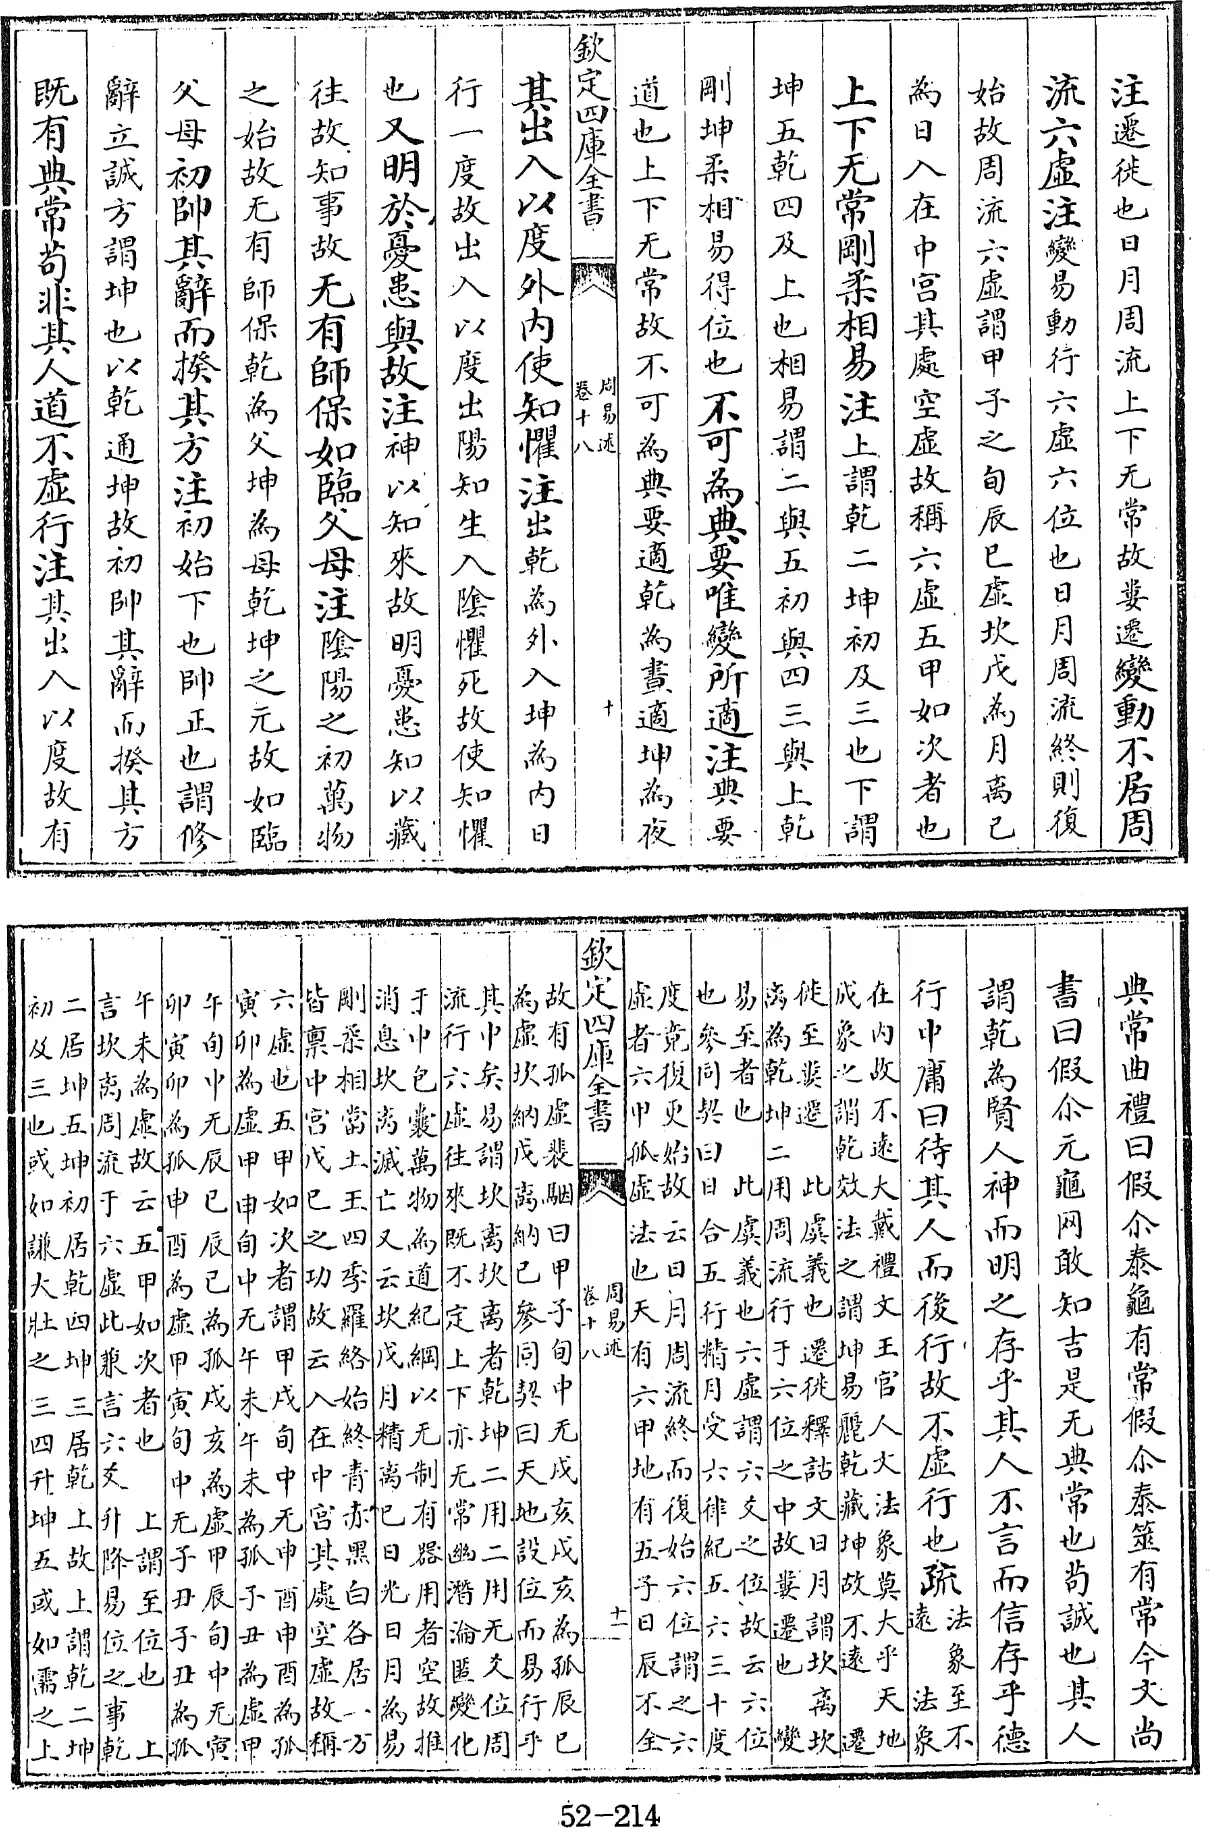 注遷徙也日月周流上下无常故婁遷變動不居周
流六虛注變易動行六虛六位也日月周流終則復
始故周流六虛謂甲子之旬辰巳虛坎戊為月离己
為日入在中宮其處空虛故稱六虛五甲如次者也
上下无常剛柔相易注上謂乾二坤初及三也下謂
坤五乾四及上也相易謂二與五初與四三與上乾
剛坤柔相易得位也不可為典要唯變所適注典要
道也上下无常故不可為典要適乾為晝適坤為夜
欽定四庫全書
周易述
卷十八
十
其出入以度外内使知懼注出乾為外入坤為内日
行一度故出入以度出陽知生入陰懼死故使知懼
也又明於憂患與故注神以知來故明憂患知以藏
往故知事故无有師保如臨父母注陰陽之初萬物
之始故无有師保乾為父坤為母乾坤之元故如臨
父母初帥其辭而揆其方注初始下也帥正也謂修
辭立誠方謂坤也以乾通坤故初帥其辭而揆其方
既有典常苟非其人道不虛行注其出入以度故有
典常曲禮曰假尒泰龜有常假尒泰筮有常今文尚
書曰假尒元龜网敢知吉是无典常也苟誠也其人
謂乾為賢人神而明之存乎其人不言而信存乎德
行中庸曰待其人而後行故不虛行也疏 法象至不
遠 法象
在内故不遠大戴禮文王官人文法象莫大乎天地
成象之謂乾效法之謂坤易麗乾藏坤故不遠 遷
徙至婁遷 此虞義也遷徙釋詁文日月謂坎离坎
离為乾坤二用周流行于六位之中故婁遷也 變
易至者也 此虞義也六虛謂六爻之位故云六位
也參同契曰日合五行精月受六律紀五六三十度
度竟復更始故云日月周流終而復始六位謂之六
虛者六甲孤虛法也天有六甲地有五子日辰不全
欽定四庫全書
周易述
卷十八
十一
故有孤虛裴駰曰甲子旬中无戌亥戌亥為孤辰巳
為虛坎納戊离納己參同契曰天地設位而易行乎
其中矣易謂坎离坎离者乾坤二用二用无爻位周
流行六虛往來既不定上下亦无常幽潛淪匿變化
于中包囊萬物為道紀綱以无制有器用者空故推
消息坎离滅亡又云坎戊月精离己日光日月為易
剛柔相當土王四季羅絡始終青赤黑白各居一方
皆稟中宮戊己之功故云入在中宮其處空虛故稱
六虛也五甲如次者謂甲戌旬中无申酉申酉為孤
寅卯為虛甲申旬中无午未午未為孤子丑為虛甲
午旬中无辰巳辰巳為孤戌亥為虛甲辰旬中无寅
卯寅卯為孤申酉為虛甲寅旬中无子丑子丑為孤
午未為虛故云五甲如次者也 上謂至位也 上
言坎离周流于六虛此兼言六爻升降易位之事乾
二居坤五坤初居乾四坤三居乾上故上謂乾二坤
初及三也或如謙大壯之三四升坤五或如需之上
52-214